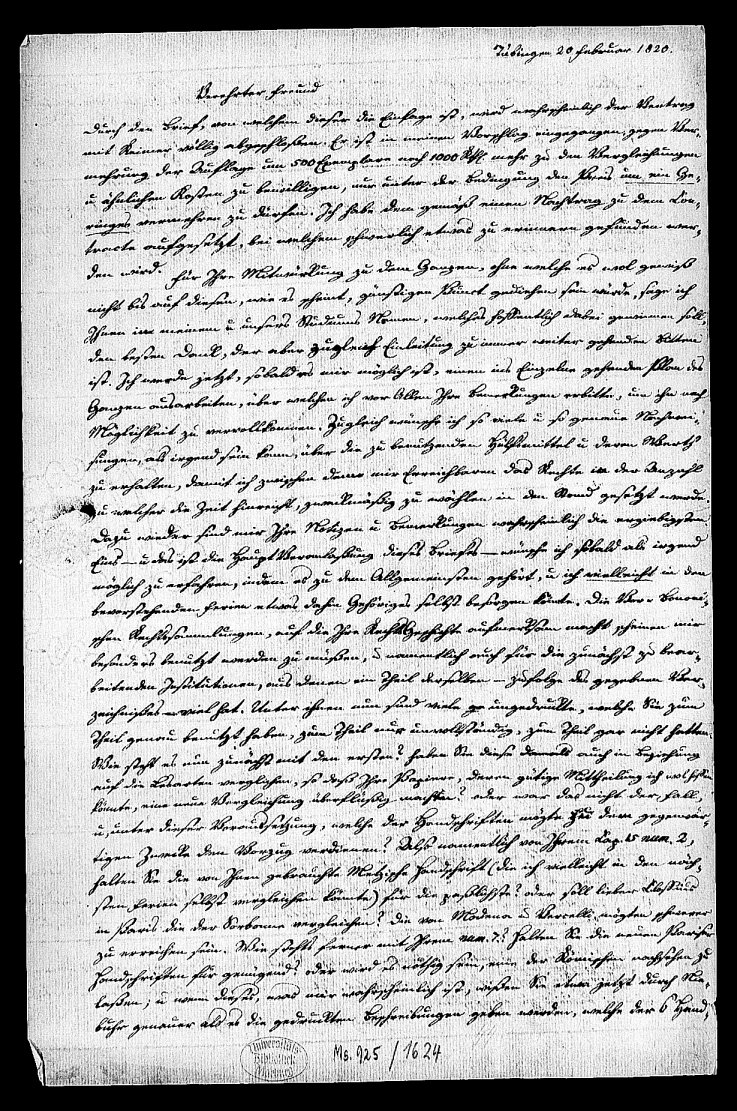 Tübingen 20 Februar 1820.
Verehrter Freund
Durch den Brief, von welchem dieser die Einlage ist, wird wahrscheinlich der Vertrag
mit Reimer völlig abgeschloßen. Er ist in meinen Vorschlag eingegangen, gegen Ver-
mehrung der Auflage um 500 Exemplare noch 1000 Rth. mehr zu den Vergleichungen
u ähnlichen Kosten zu bewilligen, nur unter der Bedingung den Preis um ein Ge-
ringes vermehren zu dürfen. Ich habe dem gemäß einen Nachtrag zu dem Con-
tracte aufgesetzt, bei welchem schwerlich etwas zu erinnern gefunden wer-
den wird. Für Ihre Mitwirkung zu dem Ganzen, ohne welche es wol gewiß
nicht bis auf diesen, wie es scheint, günstigen Punct gediehen sein würde, sage ich
Ihnen in meinem u unsers Studiums Namen, welches hoffentlich dabei gewinnen soll,
den besten Dank, der aber zugleich Einleitung zu immer weiter gehenden Bitten
ist. Ich werde jetzt, sobald es mir möglich ist, einen ins Einzelne gehenden Plan des
Ganzen ausarbeiten, über welchen ich vor Allem Ihre Bemerkungen erbitte, um ihn nach
Möglichkeit zu vervollkommnen. Zugleich wünsche ich so viele u so genaue Nachwei-
sungen, als irgend sein kann, über die zu benutzenden Hülfsmittel u deren Werth
zu erhalten, damit ich zwischen dem mir Erreichbaren das Rechte in der Anzahl
zu welcher die Zeit hinreicht, zweckmäßig zu wählen in den Stand gesetzt werde.
Dazu wieder sind mir Ihre Notizen u Bemerkungen wahrscheinlich die ergiebigsten
Eins – u das ist die Haupt Veranlaßung dieses Briefes – wünsche ich sobald als irgend
möglich zu erfahren, indem es zu dem Allgemeinsten gehört, u ich vielleicht in den
bevorstehenden Ferien etwas dahin Gehöriges selbst besorgen könte. Die Vor-Bononi-
schen Rechtssammlungen, auf die Ihre Rechtsgeschichte aufmerksam macht scheinen mir
besonders benutzt werden zu müßen, u namentlich auch für die zunächst zu bear-
beitenden Institutionen, aus denen ein Theil derselben – zufolge des gegebenen Ver-
zeichnißes – viel hat. Unter ihnen nun sind viele ungedruckte, welche Sie zum
Theil genau benutzt haben, zum Theil nur unvollständig, zum Theil gar nicht hatten.
Wie steht es nun zunächst mit den ersten? haben Sie diese damals auch in Beziehung
auf die Lesarten verglichen, so daß Ihre Papiere, deren gütige Mittheilung ich wol hoffen
könnte, eine neue Vergleichung überflüßig machten? oder war das nicht der Fall,
u, unter dieser Voraussetzung, welche der Handschriften mögte zu dem gegenwär-
tigen Zwecke den Vorzug verdienen? Also namentlich von Ihrem Cap. 15 num. 2,
halten Sie die von Ihnen gebrauchte Metzische Handschrift (die ich vielleicht in den näch-
sten Ferien selbst vergleichen könnte) für die paßlichste? oder soll lieber
in Paris die der Sorbonne vergleichen? die von Modena u Vercelli mögten schwerer
zu erreichen sein. Wie steht's ferner mit Ihrem num. 7.? Halten Sie die neuen Pariser
Handschriften für genügend? oder wird es nöthig sein, eine der Römischen nachsehen zu
laßen; u wenn dieses, was mir wahrscheinlich ist, wißen Sie etwa jetzt durch Nie-
buhr genauer als es die gedruckten Beschreibungen geben werden, welche der 6 Hand,
Universitäts
Bibliothek
Marburg
Ms. 925 / 1624